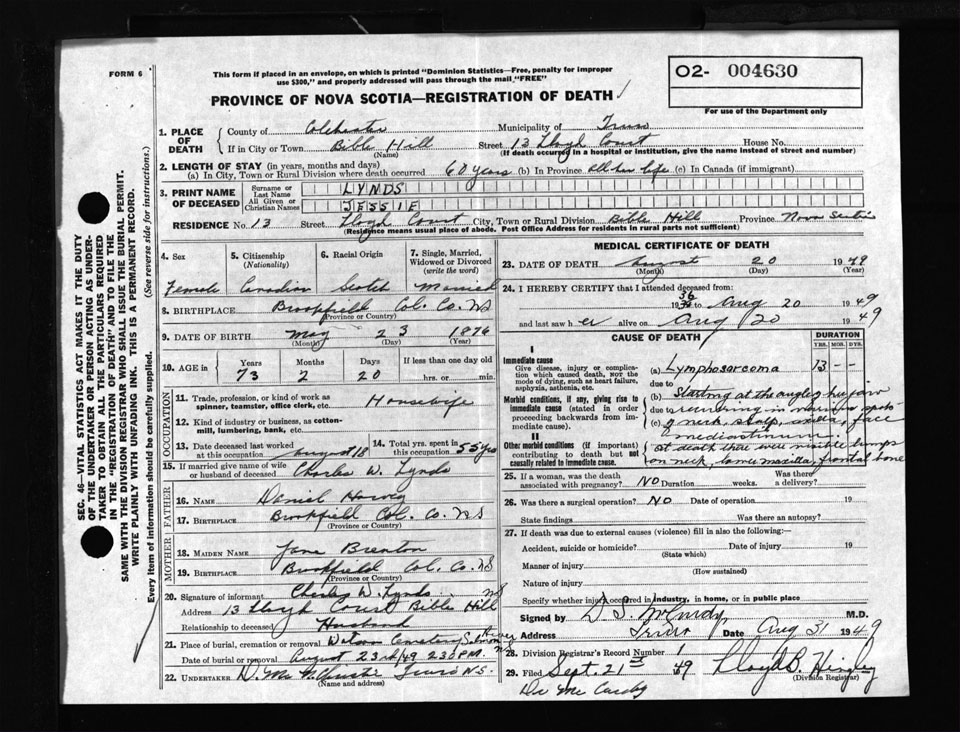 FORM 6
This form if placed in an envelope, on which is printed "Dominion Statistics—Free, penalty for improper
use $300," and properly addressed will pass through the mail "FREE"
O2- 004630
For use of the Department only
PROVINCE OF NOVA SCOTIA—REGISTRATION OF DEATH
1. PLACE OF DEATH { County of Colchester Municipality of Truro
If in City or Town Bible Hill Street 13 Lloyd Court House No.
(Name) (If death occurred in a hospital or institution, give the name instead of street and number)
2. LENGTH OF STAY (in years, months and days)
(a) In City, Town or Rural Division where death occurred 60 years (b) In Province All her life (c) In Canada (if immigrant)
3. PRINT NAME OF DECEASED { Surname or Last Name LYNDS
All Given or Christian Names JESSIE
RESIDENCE No. 13 Street Lloyd Court City, Town or Rural Division Bible Hill Province Nova Scotia
(Residence means usual place of abode. Post Office Address for residents in rural parts not sufficient)
4. Sex 5. Citizenship (Nationality) 6. Racial Origin 7. Single, Married, Widowed or Divorced (write the word)
Female Canadian Scotch Married
8. BIRTHPLACE Brookfield Col. Co. NS
(Province or Country)
9. DATE OF BIRTH May 23 1876
(Month) (Day) (Year)
10. AGE in { Years Months Days If less than one day old
73 2 20 hrs. or min.
OCCUPATION
11. Trade, profession, or kind of work as spinner, teamster, office clerk, etc. Housewife
12. Kind of industry or business, as cotton-mill, lumbering, bank, etc.
13. Date deceased last worked at this occupation August 18 14. Total yrs. spent in this occupation 55 yrs
15. If married give name of wife or husband of deceased Charles W. Lynds
FATHER
16. NAME Daniel
17. BIRTHPLACE Brookfield Col. Co. NS
(Province or Country)
MOTHER
18. MAIDEN NAME Jane Brenton
19. BIRTHPLACE Brookfield Col. Co. NS
(Province or Country)
20. Signature of informant Charles W. Lynds
Address 13 Lloyd Court Bible Hill NS
Relationship to deceased Husband
21. Place of burial, cremation or removal Cemetery Salmon River NS
Date of burial or removal August 23rd/49 2.30 P.M.
22. UNDERTAKER Truro N.S.
(Name and address)
MEDICAL CERTIFICATE OF DEATH
23. DATE OF DEATH August 20 1949
(Month) (Day) (Year)
24. I HEREBY CERTIFY that I attended deceased from:
1936 to Aug 20 1949
and last saw her alive on Aug 20 1949
CAUSE OF DEATH DURATION
YRS. MOS. DYS.
I
Immediate cause
Give disease, injury or complication which caused death, NOT the mode of dying, such as heart failure, asphyxia, asthenia, etc.
(a) Lymphosarcoma 13 - -
due to
Morbid conditions, if any, giving rise to immediate cause (stated in order proceeding backwards from immediate cause).
(b) Starting at the angle of her jaw
due to recurring in various spots
(c) of neck, scalp, axilla, face
& mediastinum
II
Other morbid conditions (if important) contributing to death but not causally related to immediate cause.
at death there were visible lumps
on neck, lower maxilla, frontal bone
25. If a woman, was the death associated with pregnancy? NO Duration weeks. Was there a delivery?
26. Was there a surgical operation? NO Date of operation 19
State findings Was there an autopsy?
27. If death was due to external causes (violence) fill in also the following:—
Accident, suicide or homicide? Date of injury 19
(State which)
Manner of injury
(How sustained)
Nature of injury
Specify whether injury occurred in industry, in home, or in public place
Signed by D. S. McCurdy M.D.
Address Truro Date Aug 31 1949
28. Division Registrar's Record Number 1
29. Filed Sept. 21st 49 Lloyd B. Hingley
(Division Registrar)
Dr Mc Curdy
SEC. 46—VITAL STATISTICS ACT MAKES IT THE DUTY
OF THE UNDERTAKER OR PERSON ACTING AS UNDER-
TAKER TO OBTAIN ALL THE PARTICULARS REQUIRED
IN THE "REGISTRATION OF DEATH" AND TO FILE THE
SAME WITH THE DIVISION REGISTRAR WHO SHALL ISSUE THE BURIAL PERMIT.
WRITE PLAINLY WITH UNFADING INK. THIS IS A PERMANENT RECORD.
Every item of information should be carefully supplied. (See reverse side for instructions.)